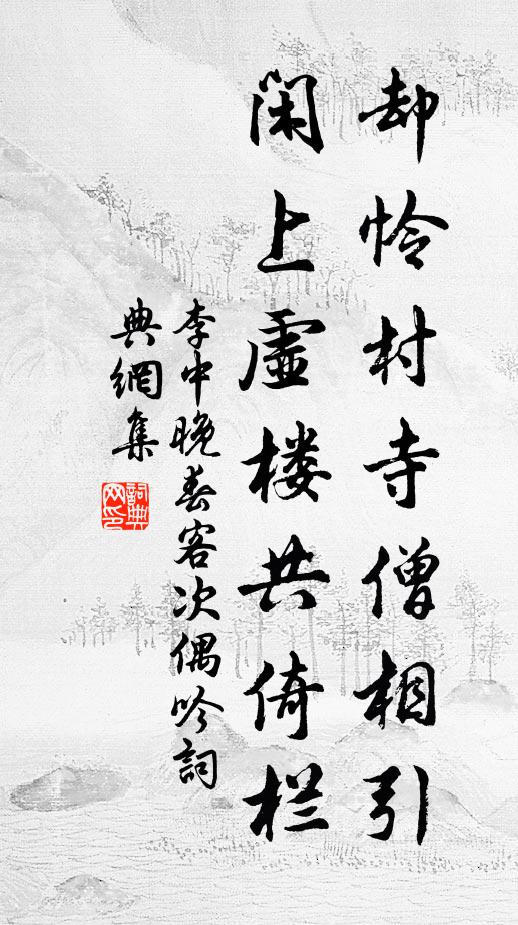 却怜村寺僧相引
闲上虚楼共倚栏
李中晚春客次偶吟詞
典網集
詞典
网印